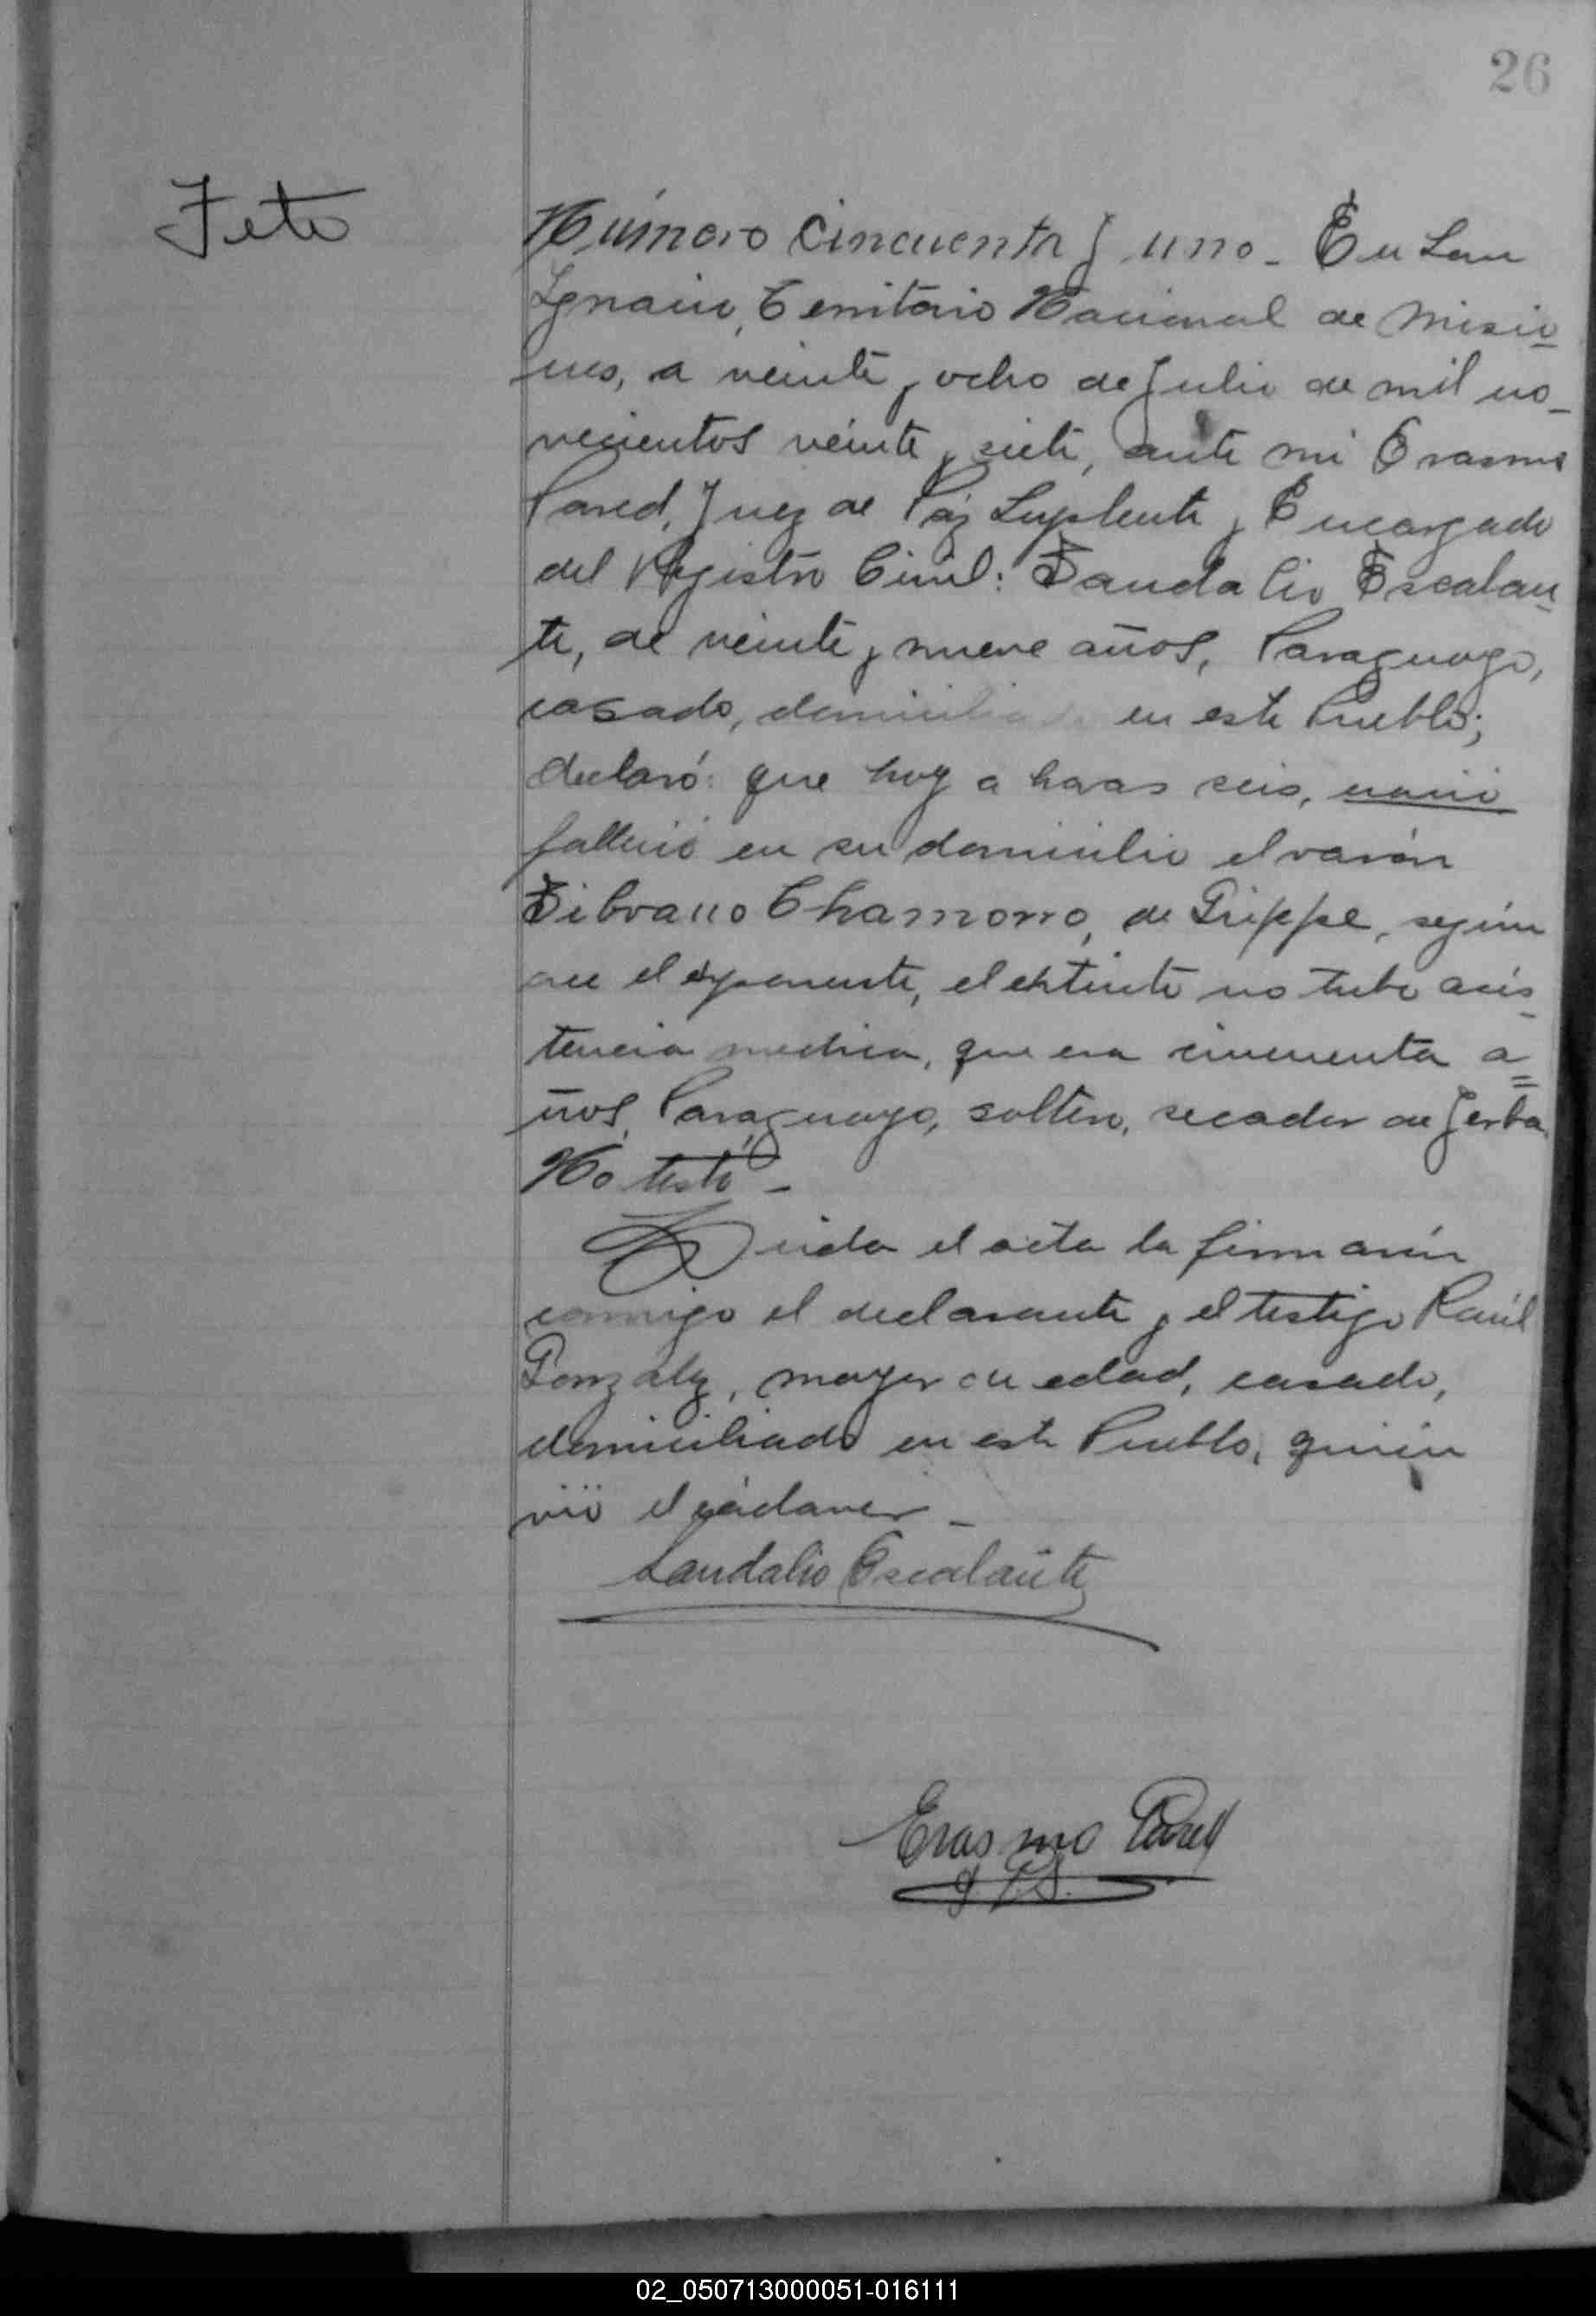 26
Feto
Número Cincuenta y uno_ En San
Ignacio, Territorio Nacional de Misio
nes, a veinte y ocho de Julio de mil no_
vecientos veinte y siete, ante mi Erasmo
Pared, Juez de Páz Suplente y Encargado
del Registro Civil: Sandalio Escalan
te, de veinte y nueve años, Paraguayo,
casado, domiciliado en este Pueblo;
declaró: que hoy a horas seis,
falleció en su domicilio el varón
Sibrano Chamorro, de Grippe, según
el exponente, el extinto no tubo asis
tencia medica, que era cincuenta a
ños, Paraguayo, soltero, secador de Yerba.
No testó_
Leida el acta la firmarón
conmigo el declarante y el testigo Raúl
Gonzalez, mayor de edad, casado,
domiciliado en este Pueblo, quién
vió el cádaver_
Sandalio Escalante
Erasmo Pared
J. P. S.
02_050713000051-016111